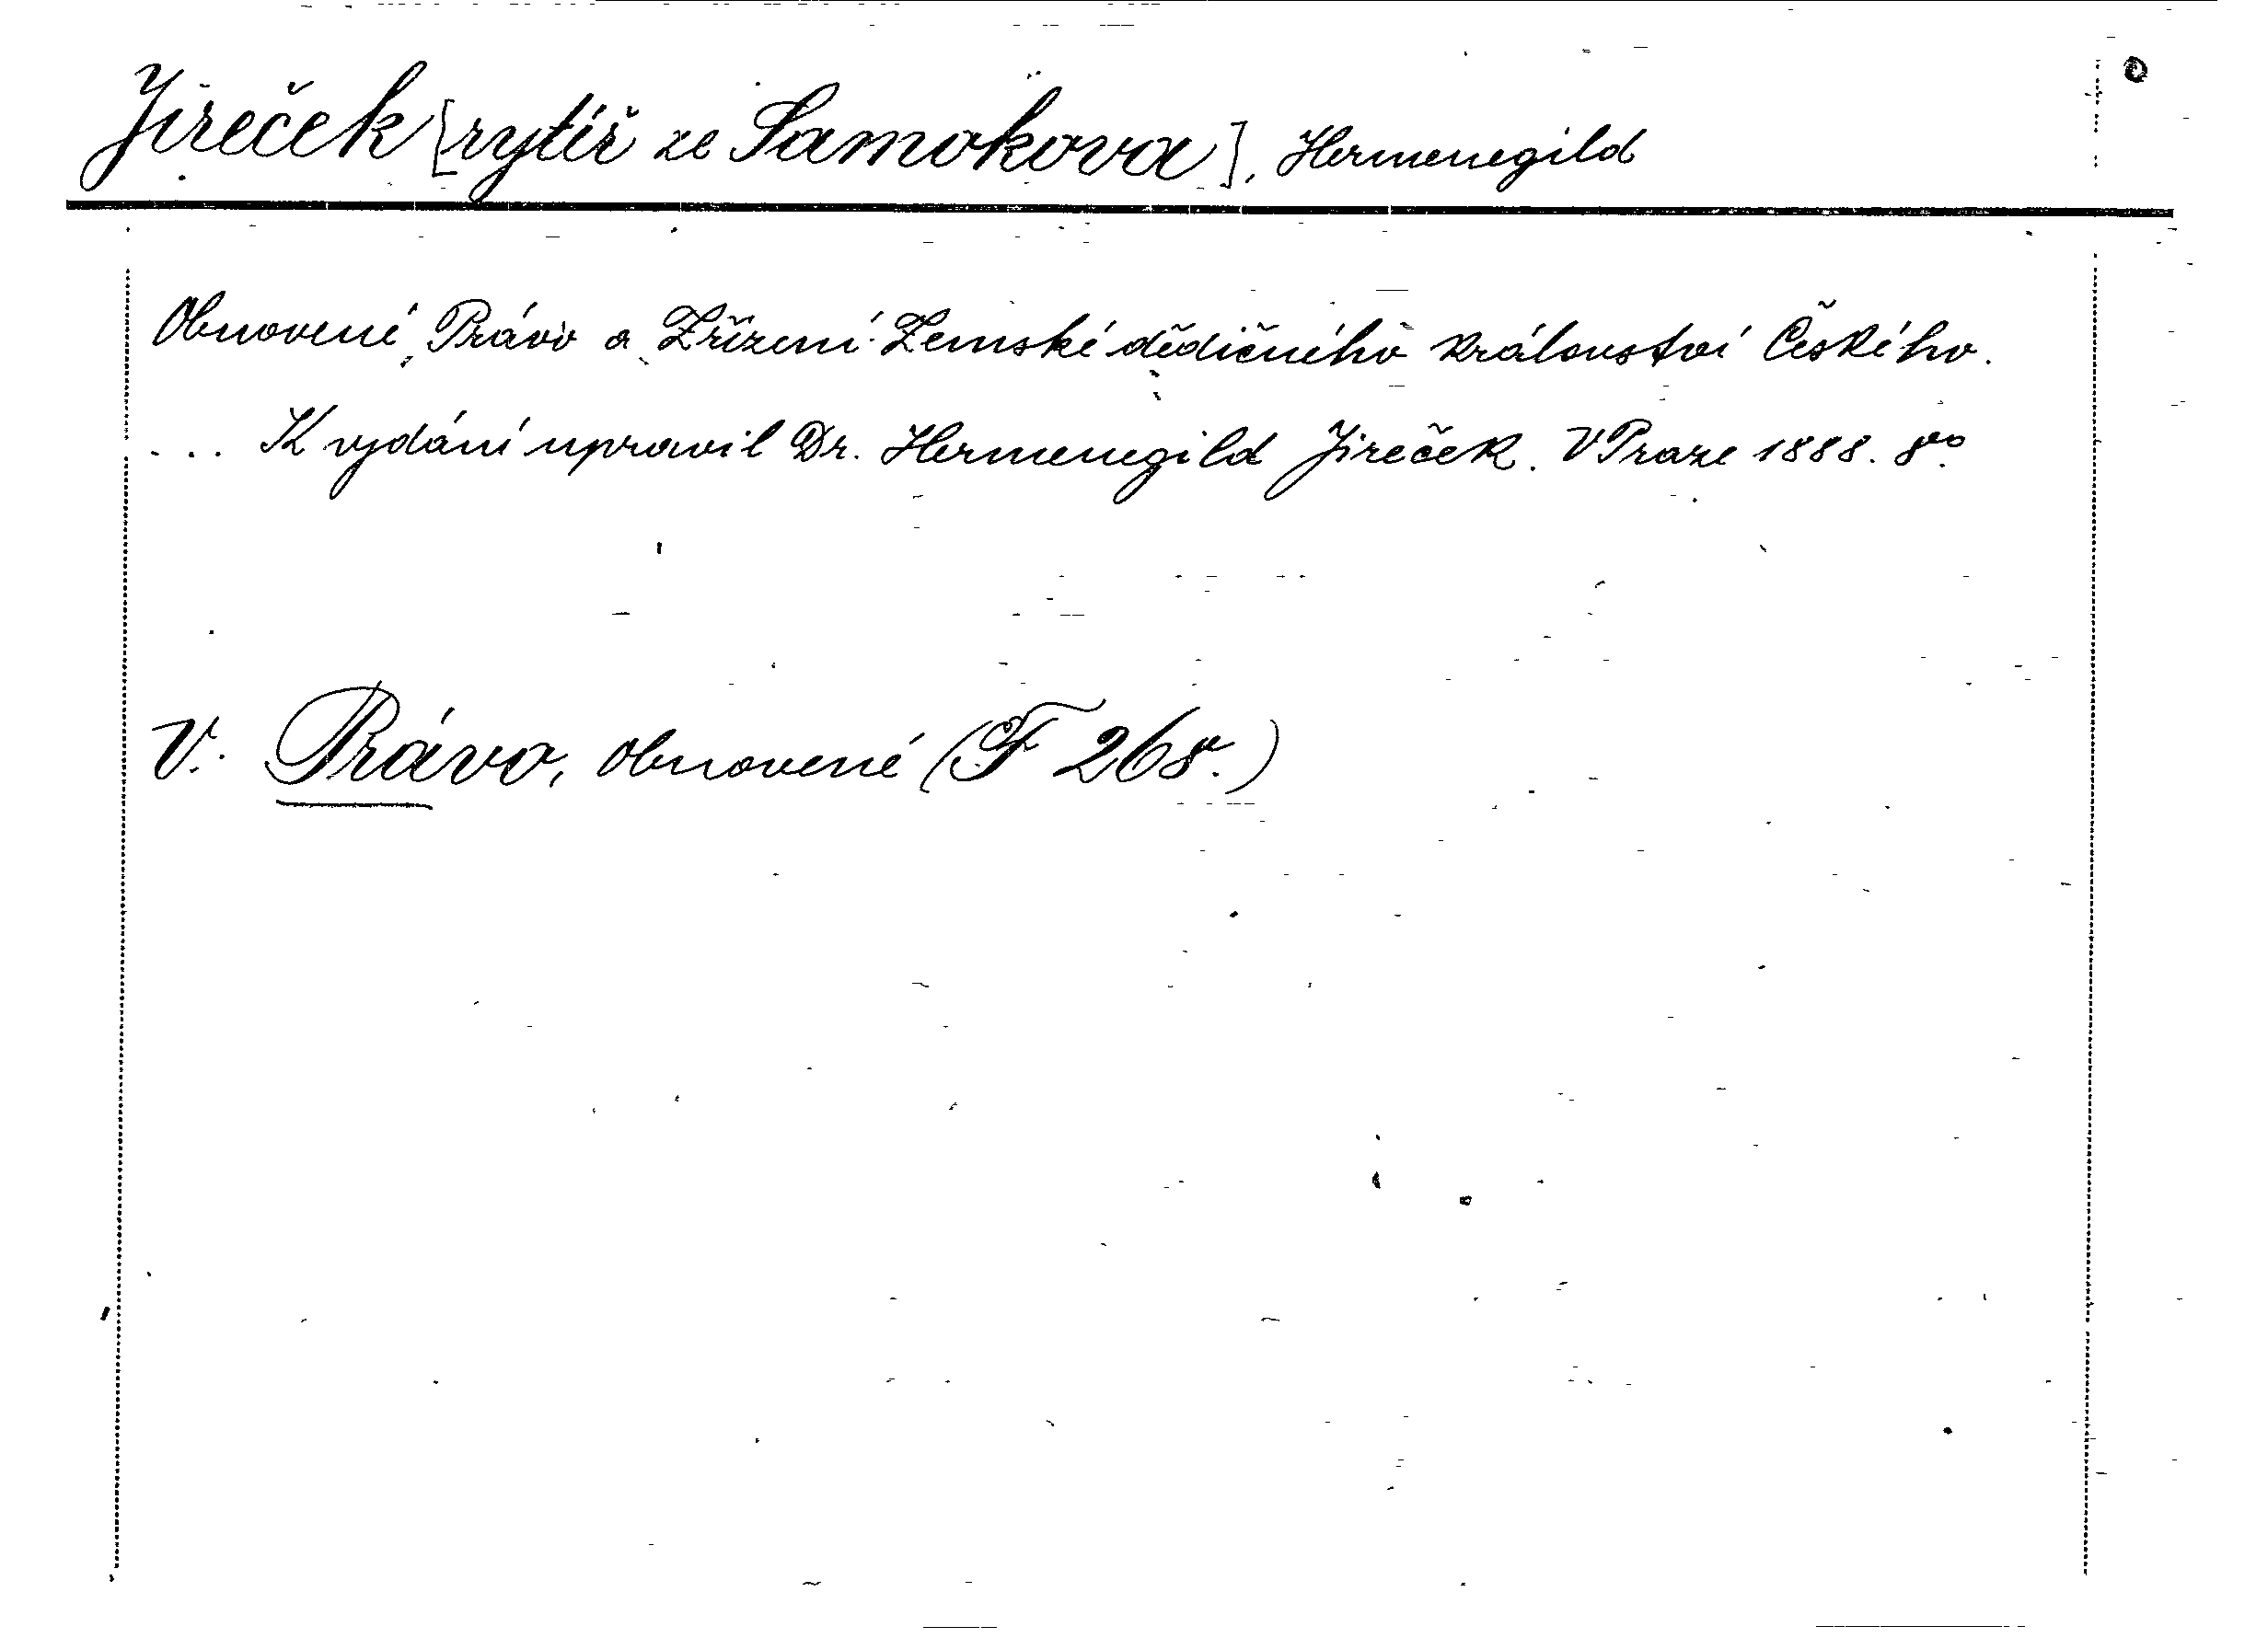 Jireček [rytíř ze Samokova], Hermenegild
Obnovené Právo a Zřízení Zemské dědičného království Českého.
... K vydání upravil Dr. Hermenegild Jireček. V Praze 1888. 8vo.
V. Právo, obnovené (F 268.)